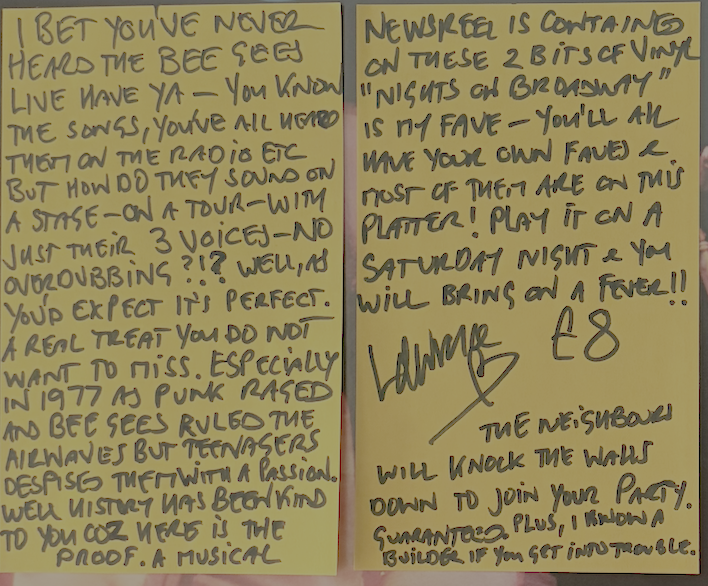 I BET YOU'VE NEVER
HEARD THE BEE GEES
LIVE HAVE YA – YOU KNOW
THE SONGS, YOU'VE ALL HEARD
THEM ON THE RADIO ETC
BUT HOW DO THEY SOUND ON
A STAGE – ON A TOUR – WITH
JUST THEIR 3 VOICES – NO
OVERDUBBING ?!? WELL, AS
YOU'D EXPECT IT'S PERFECT.
A REAL TREAT YOU DO NOT
WANT TO MISS. ESPECIALLY
IN 1977 AS PUNK RAGED
AND BEE GEES RULED THE
AIRWAVES BUT TEENAGERS
DESPISED THEM WITH A PASSION.
WELL HISTORY HAS BEEN KIND
TO YOU COZ HERE IS THE
PROOF. A MUSICAL
NEWSREEL IS CONTAINED
ON THESE 2 BITS OF VINYL
"NIGHTS ON BROADWAY"
IS MY FAVE – YOU'LL ALL
HAVE YOUR OWN FAVES &
MOST OF THEM ARE ON THIS
PLATTER! PLAY IT ON A
SATURDAY NIGHT & YOU
WILL BRING ON A FEVER!!
£8
THE NEIGHBOURS
WILL KNOCK THE WALLS
DOWN TO JOIN YOUR PARTY.
GUARANTEED. PLUS, I KNOW A
BUILDER IF YOU GET INTO TROUBLE.